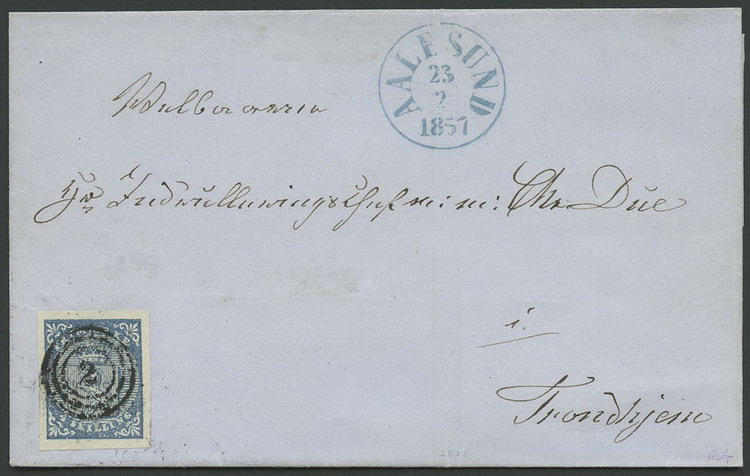 AALESUND
23
2
1857
Velbaarne
Hr Indrulleringschef m: m: Chr Due
i
2
SKILLING
Trondhjem